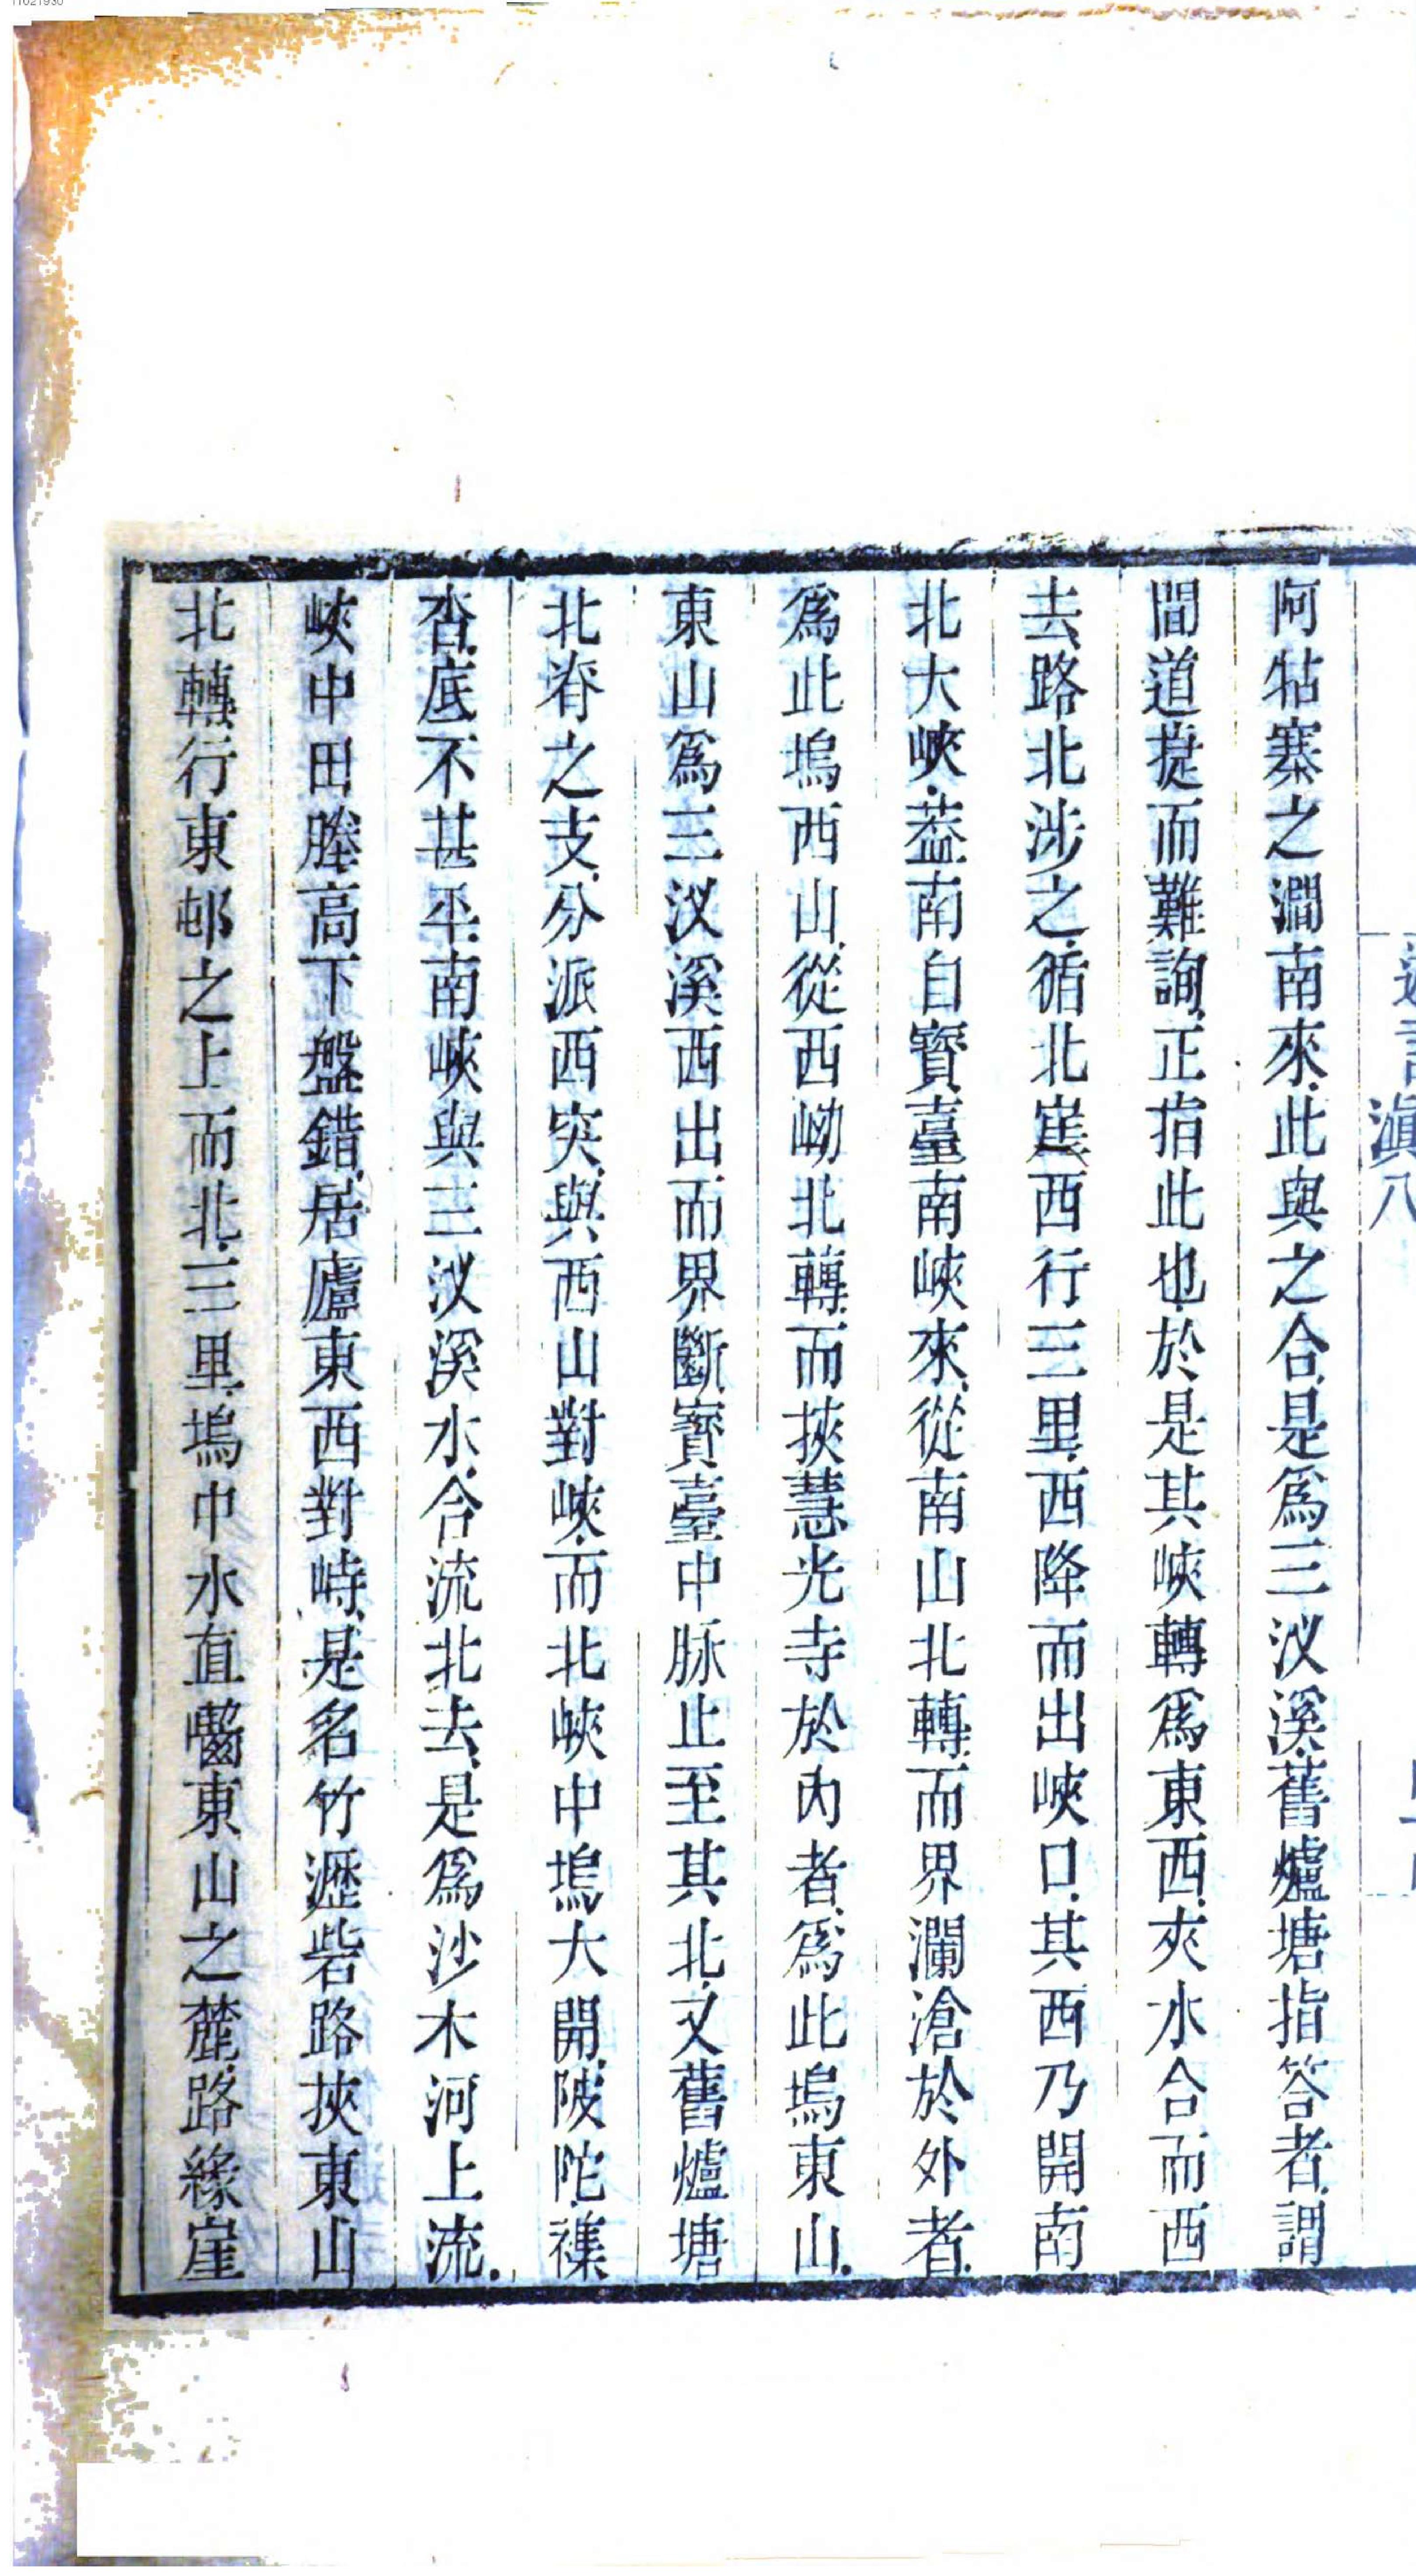 阿牯寨之澗南來.此與之合.是爲三汊溪.舊爐塘指答者.謂
間道捷而難詢.正指此也.於是其峽轉爲東西.夾水合而西
去.路北涉之.循北崖西行三里.西降而出峽口.其西乃開南
北大峽.蓋南自寶臺南峽來.從南山北轉.而界瀾滄於外者.
爲此塢西山.從西㘭北轉.而挾慧光寺於內者.爲此塢東山.
東山爲三汊溪西出而界斷.寶臺中脉止至其北.又舊爐塘
北脊之支.分派西突.與西山對峽.而北峽中塢大開.陂陀襍
沓.底不甚平.南峽與三汊溪水.合流北去.是爲沙木河上流.
峽中田塍高下盤錯.居廬東西對峙.是名竹瀝砦路挾東山
北轉.行東邨之上而北.三里.塢中水直嚙東山之麓.路緣崖
滇八